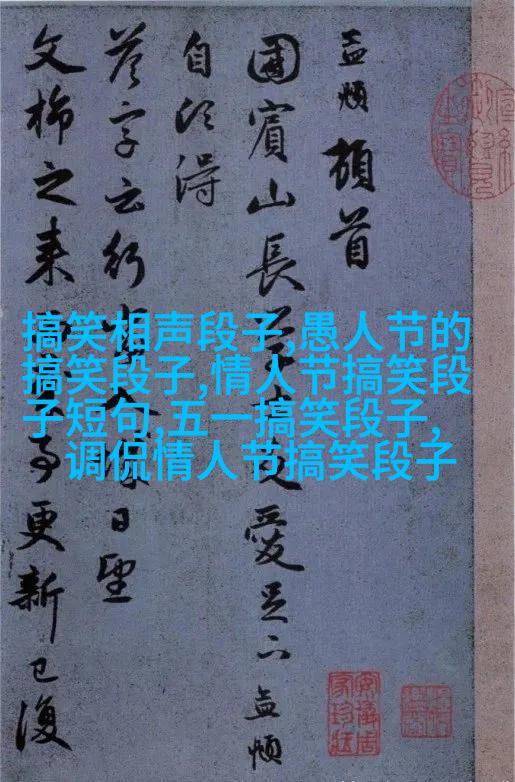 孟頫頓首
國賓山長 愛足下孟頫
自頃得
荅字云行 日望
文斾之来 更新已復
搞笑相声段子,愚人节的
搞笑段子,情人节搞笑段
子短句,五一搞笑段子,
调侃情人节搞笑段子